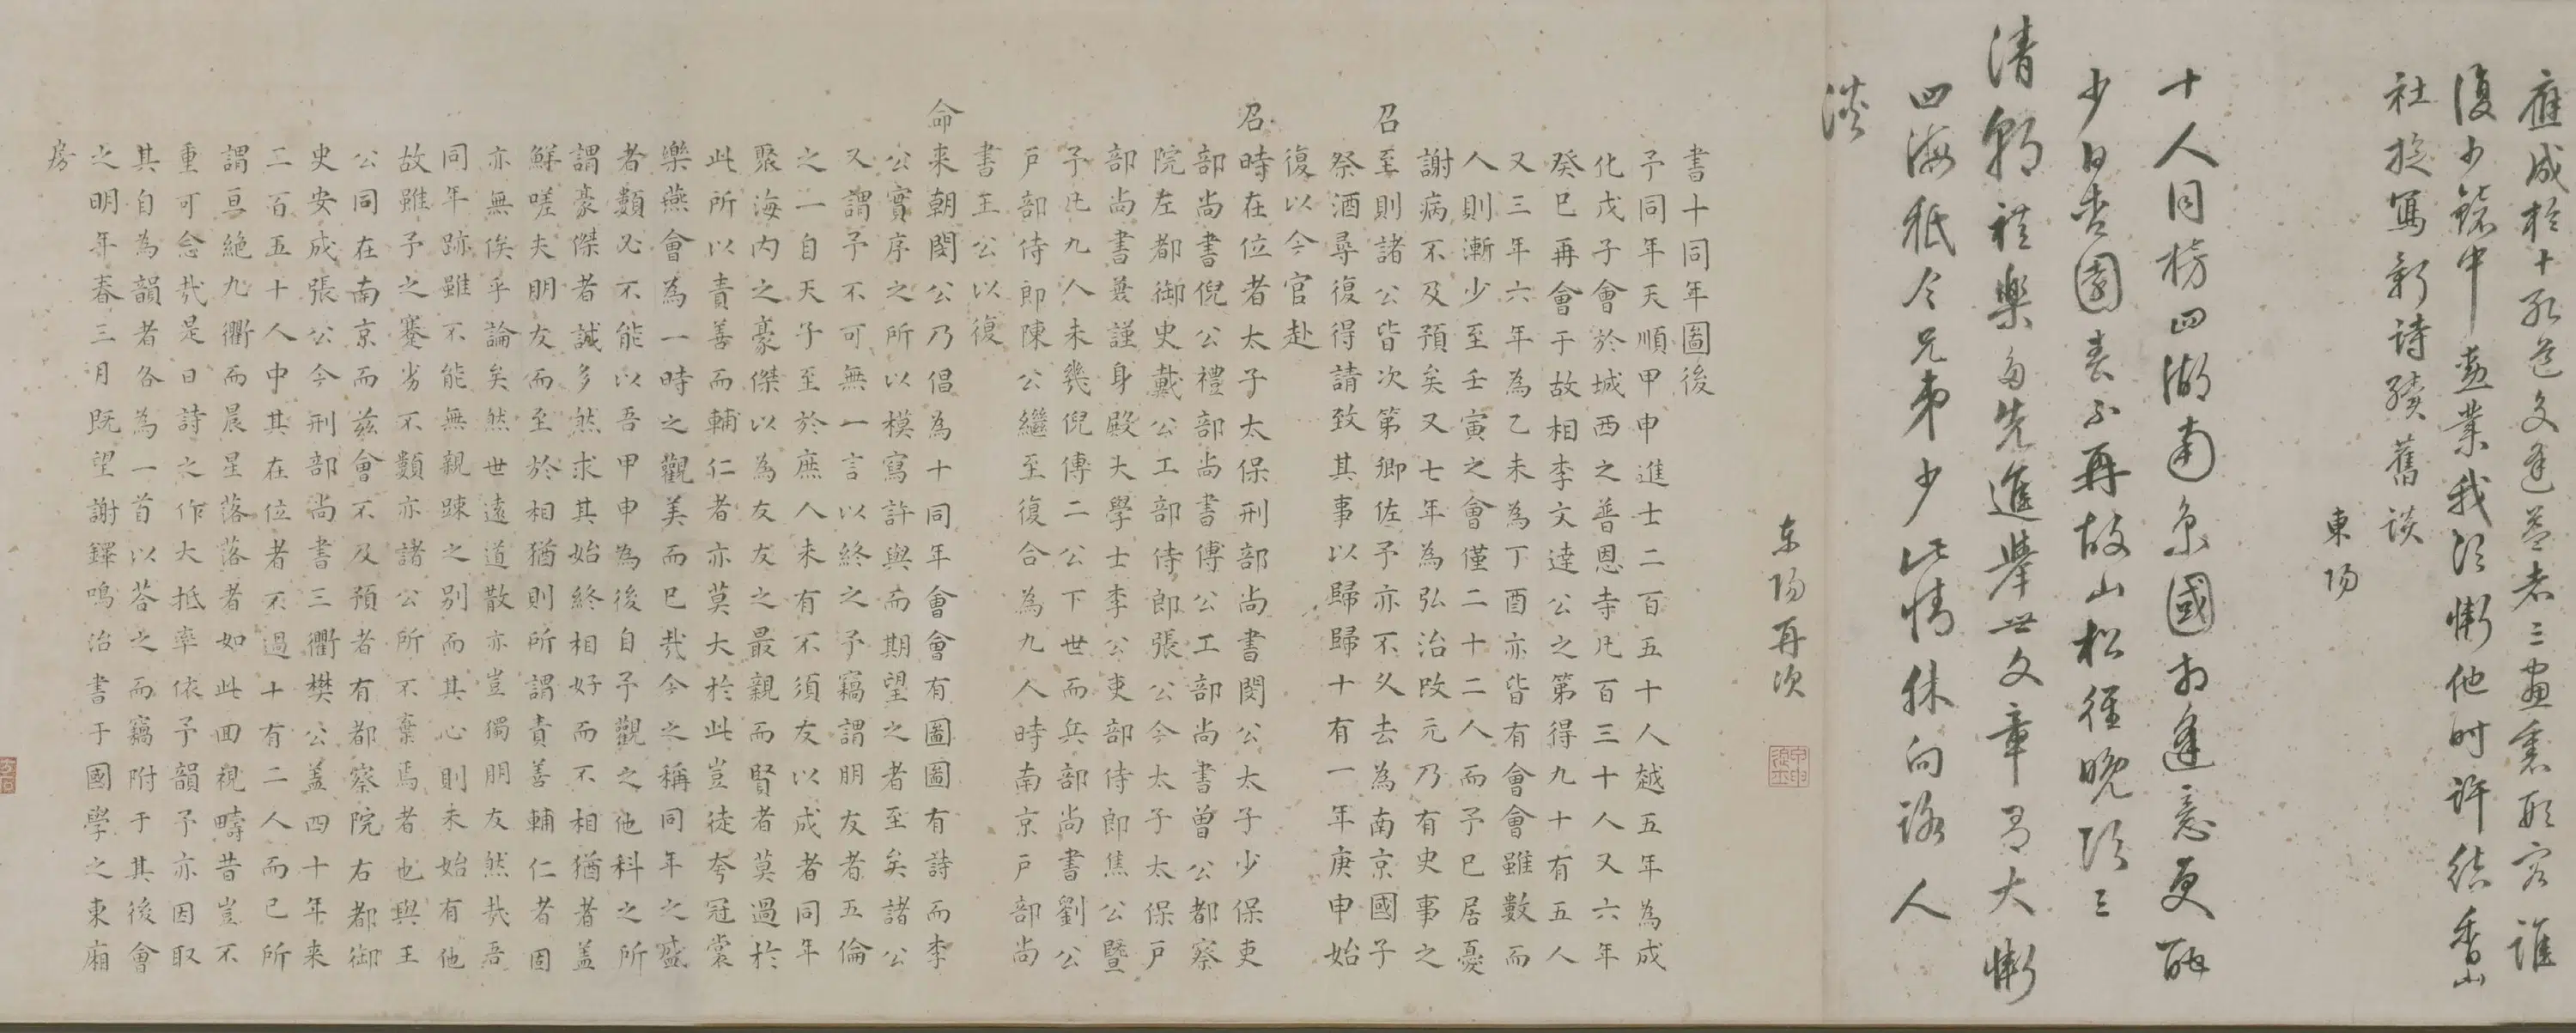 應成於十isers
復少巍中盡業我須慚他時許結香山
社旋寫新詩續舊談
東陽
十人同榜四湖南京國相逢意更酣
少日杏園春不再故山松徑晚須三
清朝禮樂多先進舉世文章有大慚
四海秖今兄弟少此情休向路人
淡
東陽再次
書十同年圖後
予同年天順甲申進士二百五十人越五年為成
化戊子會於城西之普恩寺凡百三十人又六年
癸巳再會于故相李文達公之第得九十有五人
又三年六年為乙未為丁酉亦皆有會會雖數而
人則漸少至壬寅之會僅二十二人而予已居憂
謝病不及預矣又七年為弘治改元乃有史事之
召至則諸公皆次第卿佐予亦不久去為南京國子
祭酒尋復得請致其事以歸歸十有一年庚申始
復以今官赴
召時在位者太子太保刑部尚書閔公太子少保吏
部尚書倪公禮部尚書傅公工部尚書曾公都察
院左都御史戴公工部侍郎張公今太子太保戶
部尚書兼謹身殿大學士李公吏部侍郎焦公暨
予凡九人未幾倪傅二公下世而兵部尚書劉公
戶部侍郎陳公繼至復合為九人時南京戶部尚
書王公以復
命來朝閔公乃倡為十同年會會有圖圖有詩而李
公實序之所以模寫許與而期望之者至矣諸公
又謂予不可無一言以終之予竊謂朋友者五倫
之一自天子至於庶人未有不須友以成者同年
聚海內之豪傑以為友友之最親而賢者莫過於
此所以責善而輔仁者亦莫大於此豈徒夸冠裳
樂燕會為一時之觀美而已哉今之稱同年之盛
者數必不能以吾甲申為後自予觀之他科之所
謂豪傑者誠多然求其始終相好而不相猶者盖
鮮嗟夫朋友而至於相猶則所謂責善輔仁者固
亦無俟乎論矣然世遠道散亦豈獨朋友然哉吾
同年跡雖不能無親踈之別而其心則未始有他
故雖予之蹇劣不類亦諸公所不棄焉者也與王
公同在南京而茲會不及預者有都察院右都御
史安成張公今刑部尚書三衢樊公盖四十年来
二百五十人中其在位者不過十有二人而已所
謂亘絕九衢而晨星落落者如此回視疇昔豈不
重可念哉是日詩之作大抵率依予韻予亦因取
其自為韻者各為一首以荅之而竊附于其後會
之明年春三月既望謝鐸鳴治書于國學之東廂
房